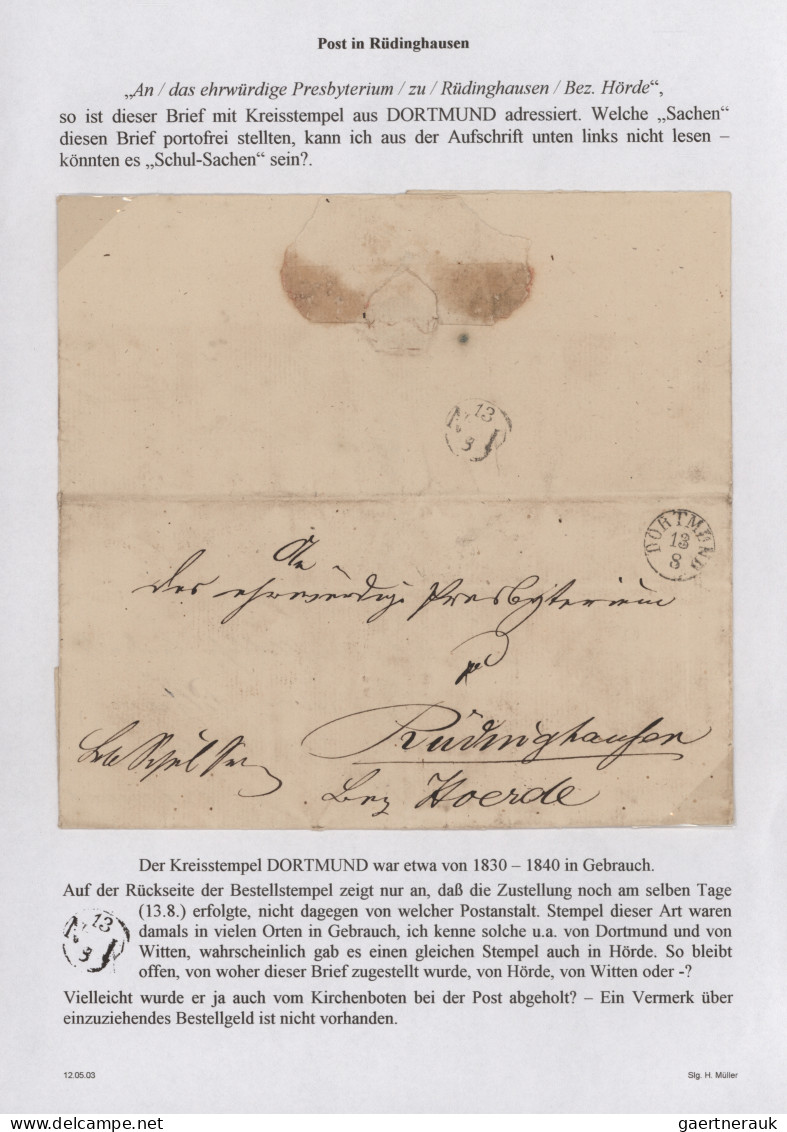 Post in Rüdinghausen
„An / das ehrwürdige Presbyterium / zu / Rüdinghausen / Bez. Hörde“,
so ist dieser Brief mit Kreisstempel aus DORTMUND adressiert. Welche „Sachen“
diesen Brief portofrei stellten, kann ich aus der Aufschrift unten links nicht lesen –
könnten es „Schul-Sachen“ sein?.
N 13
8 I
DORTMUND
13
8
An
das ehrwürdige Presbyterium
zu
Rüdinghausen
Schul
Bez Hoerde
Der Kreisstempel DORTMUND war etwa von 1830 – 1840 in Gebrauch.
Auf der Rückseite der Bestellstempel zeigt nur an, daß die Zustellung noch am selben Tage
(13.8.) erfolgte, nicht dagegen von welcher Postanstalt. Stempel dieser Art waren
damals in vielen Orten in Gebrauch, ich kenne solche u.a. von Dortmund und von
Witten, wahrscheinlich gab es einen gleichen Stempel auch in Hörde. So bleibt
offen, von woher dieser Brief zugestellt wurde, von Hörde, von Witten oder -?
N 13
8 I
Vielleicht wurde er ja auch vom Kirchenboten bei der Post abgeholt? – Ein Vermerk über
einzuziehendes Bestellgeld ist nicht vorhanden.
12.05.03
Slg. H. Müller
delcampe.net
gaertnerauk